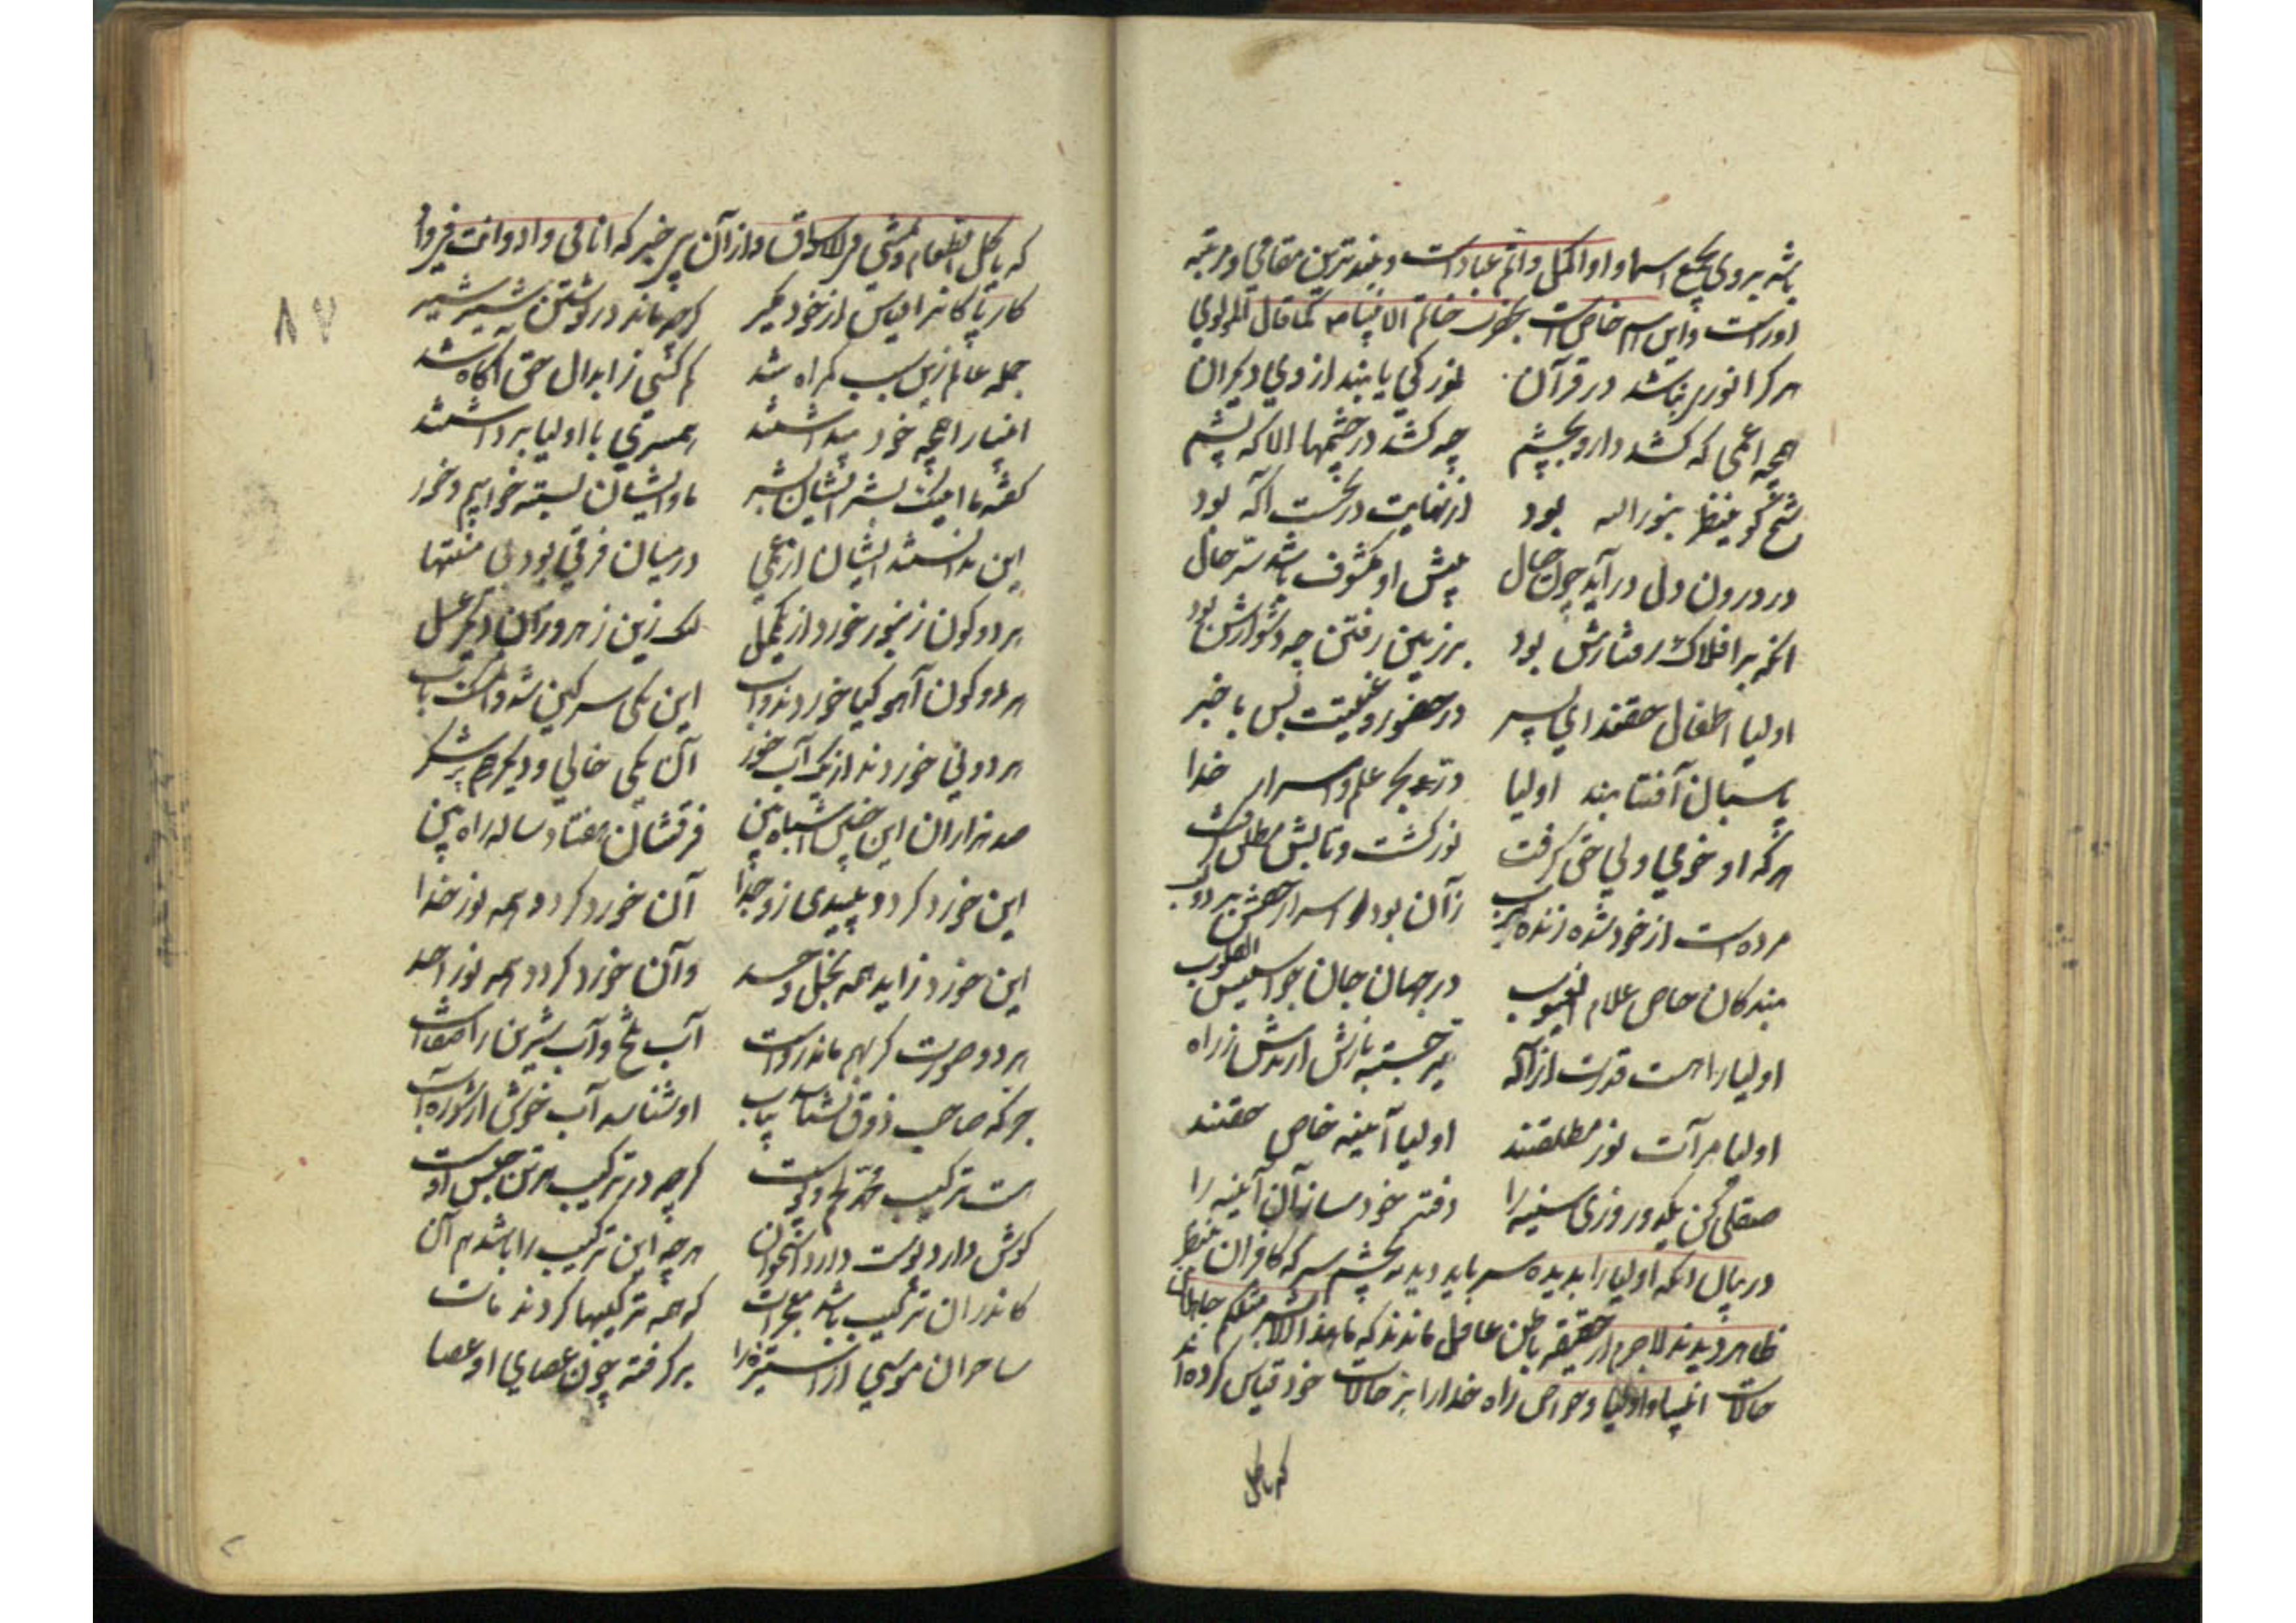 باشد بروی بجمیع اسما و او اکمل و اتم عباد است و بلندترین مقامی و مرتبه
اوراست و این اسم خاص است بحضرت خاتم الانبیا ص کما قال المولوی
هر کرا نوری نباشد در قرآن نور کی یابند از وی دیگران
همچو اعمی که کشد دارو بچشم چه کشد در چشمها الا که پشم
شیخ کو ینظر بنور الله بود از نهایت در نخست آگه بود
در درون دل در آید چون خیال پیش او مکشوف باشد سر حال
آنکه بر افلاک رفتارش بود بر زمین رفتن چه دشوارش بود
اولیا اطفال حقند ای پسر در حضور و غیبت بس با خبر
پاسبان آفتابند اولیا در بحر علم و اسرار خدا
هر که او خوی ولی حق گرفت نور گشت و تابش مطلق گرفت
مرده است از خود شده زنده برب زآن بود اسرار حقش بر دو لب
بندگان خاص علام الغیوب در جهان جان جواسیس القلوب
اولیا را هست قدرت از آله تیر جسته باز آرندش ز راه
اولیا مرآت نور مطلقند اولیا آیینه خاص حقند
صیقلی کن یکدو روزی سینه را دفتر خود ساز آن آیینه را
در بیان آنکه اولیا را بدیده سر باید دید نه بچشم سر که کافران بنظر
ظاهر دیدند لاجرم از حقیقه باطن غافل ماندند که ما هذا الا بشر مثلکم جاهلان
حالات انبیا و اولیا و خواص راه خدا را بر حالات خود قیاس کرده اند
که یاکل
که یاکل الطعام و یمشی فی الاسواق و از آن بی خبر که انا فی واد و انت فی واد
۸۷
کار پاکانرا قیاس از خود مگیر گرچه ماند در نوشتن شیر شیر
جمله عالم زین سبب گمراه شد کم کسی ز ابدال حق آگاه شد
انبیا را همچو خود پنداشتند همسری با اولیا برداشتند
گفته ما اینک بشر ایشان بشر ما و ایشان بسته خوابیم و خور
این ندانستند ایشان از عمی در میان فرقی بود بی منتها
هر دو گون زنبور خورد از یک محل لیک زین زهر و ز آن دیگر عسل
هر دو گون آهو گیا خوردند و آب این یکی سرگین شد و آن مشک ناب
هر دو نی خوردند از یک آب خور آن یکی خالی و دیگر هم پر شکر
صد هزاران این چنین اشباه بین فرقشان هفتاد ساله راه بین
این خورد گردد پلیدی زو جدا آن خورد گردد همه نور خدا
این خورد زاید همه بخل و حسد وآن خورد گردد همه نور احد
هر دو صورت گر بهم ماند رواست آب تلخ و آب شیرین را صفاست
جز که صاحب ذوق نشناسد بیاب او شناسد آب خوش از شوره آب
هست ترکیب محمد لحم و پوست گرچه در ترکیب هر تن جنس اوست
گوش دارد پوست دارد استخوان هرچه این ترکیب را باشد هم آن
کاندر آن ترکیب باشد معجزات که همه ترکیبها گردند مات
ساحران موسی از استیزه را برگرفته چون عصای او عصا